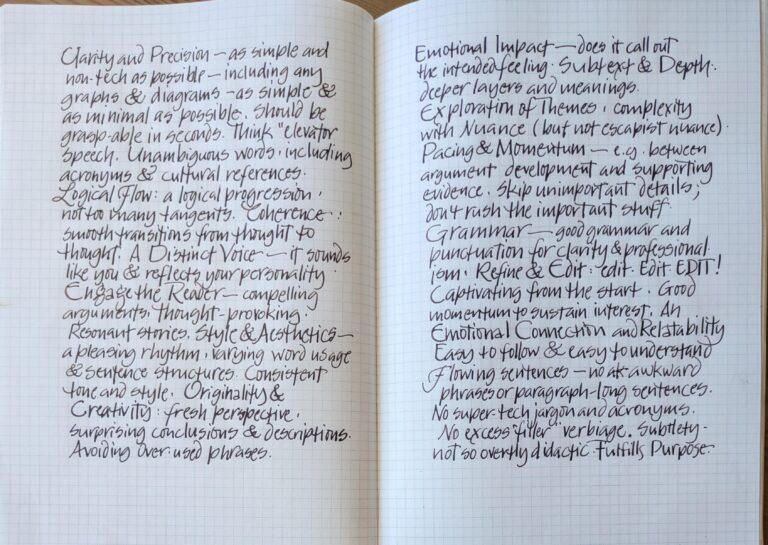 Clarity and Precision – as simple and
non-tech as possible – including any
graphs & diagrams – as simple &
as minimal as possible. Should be
grasp-able in seconds. Think "elevator
speech. Unambiguous words, including
acronyms & cultural references.
Logical Flow: a logical progression,
not too many tangents. Coherence:
smooth transitions from thought to
thought. A Distinct Voice – it sounds
like you & reflects your personality.
Engage the Reader – compelling
arguments, thought-provoking.
Resonant stories. Style & Aesthetics –
a pleasing rhythm, varying word usage
& sentence structures. Consistent
tone and style. Originality &
Creativity: fresh perspective,
surprising conclusions & descriptions.
Avoiding over-used phrases.
Emotional Impact – does it call out
the intended feeling. Subtext & Depth:
deeper layers and meanings.
Exploration of Themes, complexity
with Nuance (but not escapist nuance).
Pacing & Momentum – e.g. between
argument development and supporting
evidence. Skip unimportant details;
don't rush the important stuff.
Grammar – good grammar and
punctuation for clarity & professional-
ism. Refine & Edit: edit. Edit. EDIT!
Captivating from the start. Good
momentum to sustain interest. An
Emotional Connection and Relatability
Easy to follow & easy to understand
Flowing sentences – no awkward
phrases or paragraph-long sentences.
No super-tech jargon and acronyms.
No excess "filler" verbiage. Subtlety –
not so overtly didactic. Fulfills Purpose.